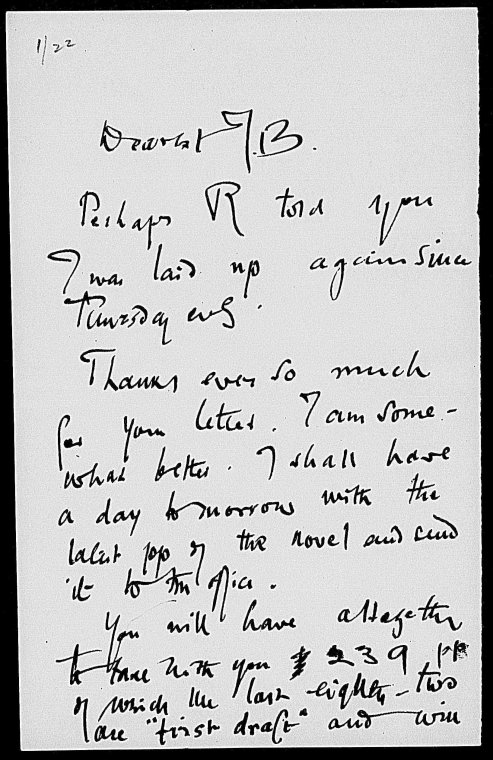 1/22
Dearest J.B.
Perhaps R told you
I was laid up again since
Thursday evg.
Thanks ever so much
for your letter. I am some-
what better. I shall have
a day tomorrow with the
latest pp of the novel and send
it to the office.
You will have altogether
to take with you 239 pp
of which the last eighty-two
are "first draft" and will